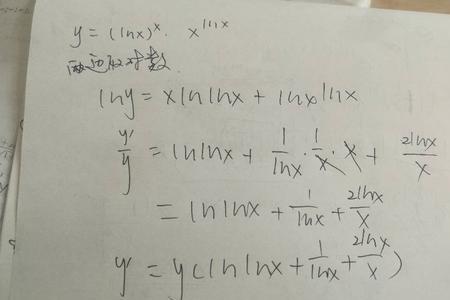 y = (lnx)^x · x^{lnx}
两边取对数
lny = xlnlnx + lnx lnx
y'/y = lnlnx + 1/lnx · 1/x · x + 2lnx/x
= lnlnx + 1/lnx + 2lnx/x
y' = y(lnlnx + 1/lnx + 2lnx/x)